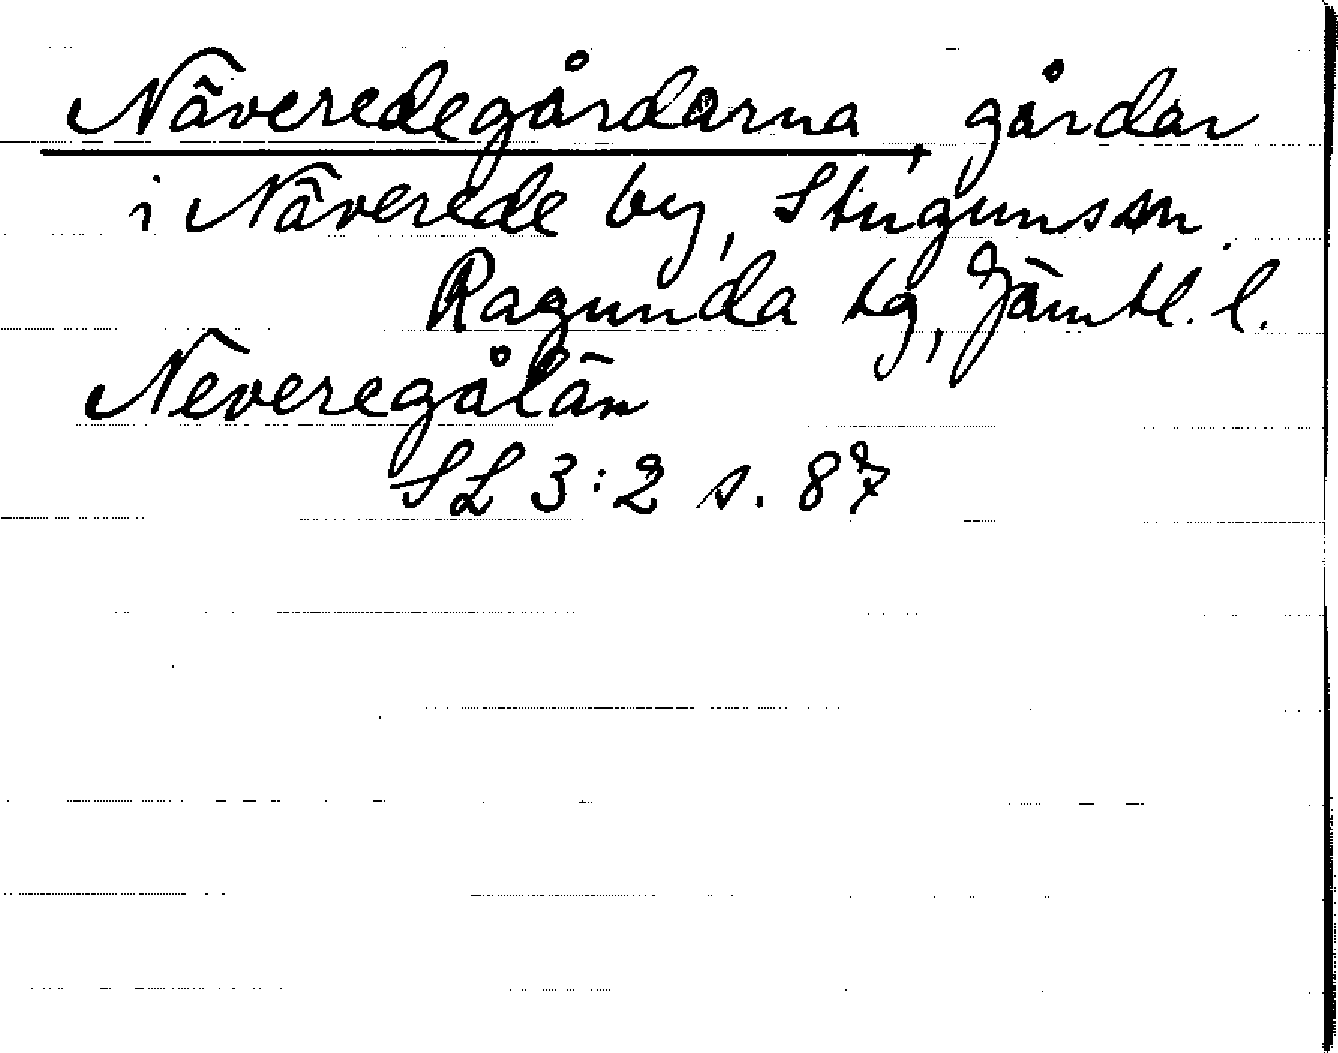 Näveredegårdarna, gårdar
i Näverede by, Stuguns sn.
Ragunda tg, Jämtl. l.
Neveregålän
SL 3:2 s. 87